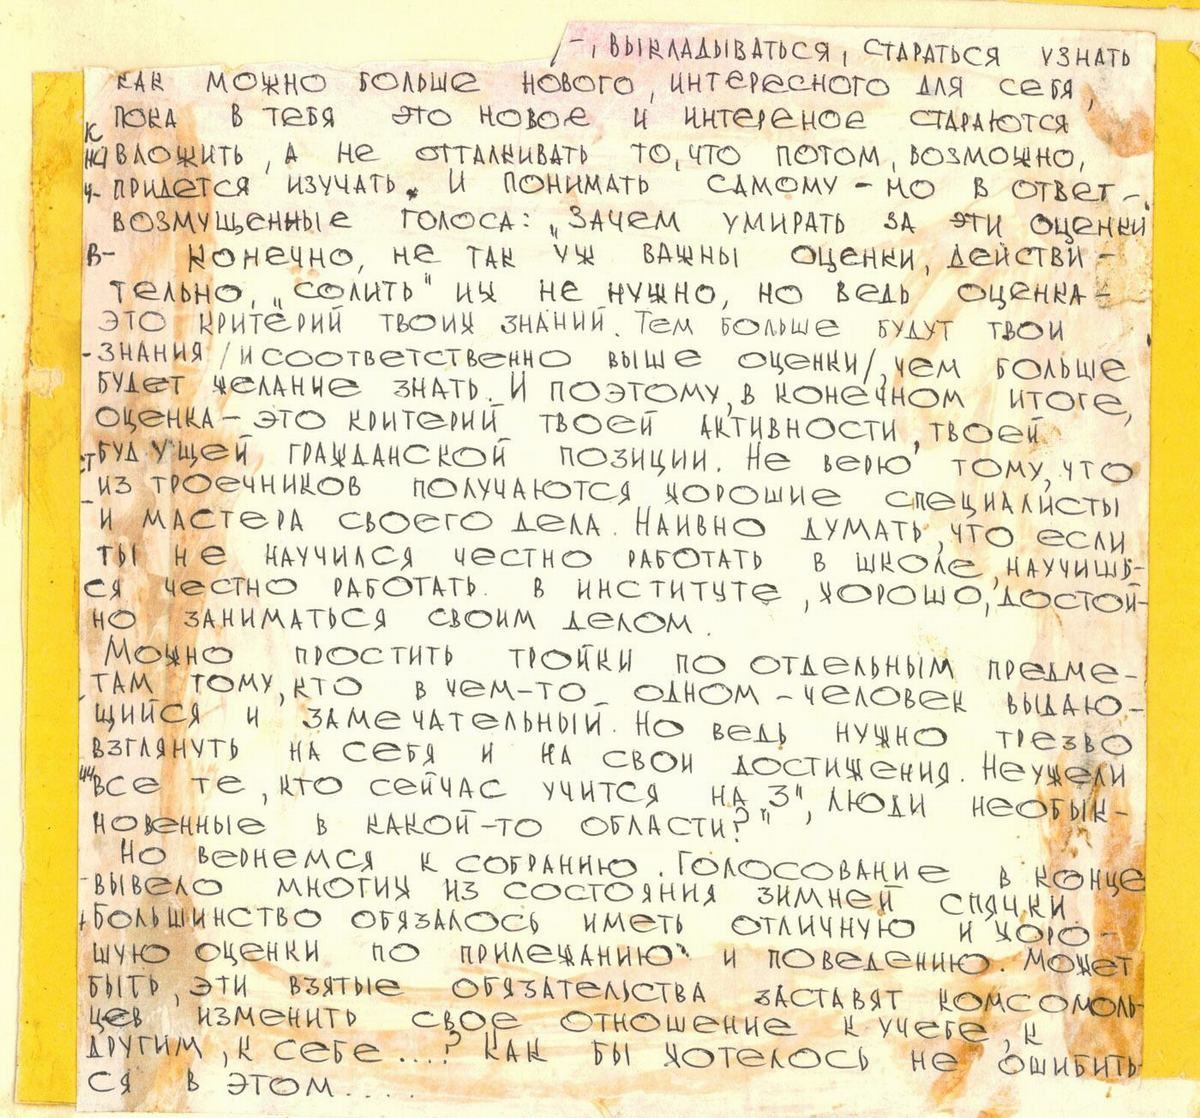 –, ВЫКЛАДЫВАТЬСЯ, СТАРАТЬСЯ УЗНАТЬ
КАК МОЖНО БОЛЬШЕ НОВОГО, ИНТЕРЕСНОГО ДЛЯ СЕБЯ,
ПОКА В ТЕБЯ ЭТО НОВОЕ И ИНТЕРЕНОЕ СТАРАЮТСЯ
ВЛОЖИТЬ, А НЕ ОТТАЛКИВАТЬ ТО, ЧТО ПОТОМ, ВОЗМОЖНО,
ПРИДЕТСЯ ИЗУЧАТЬ. И ПОНИМАТЬ САМОМУ – НО В ОТВЕТ –
ВОЗМУЩЕННЫЕ ГОЛОСА: „ЗАЧЕМ УМИРАТЬ ЗА ЭТИ ОЦЕНКИ
КОНЕЧНО, НЕ ТАК УЖ ВАЖНЫ ОЦЕНКИ, ДЕЙСТВИ–
ТЕЛЬНО, „СОЛИТЬ" ИХ НЕ НУЖНО, НО ВЕДЬ ОЦЕНКА –
ЭТО КРИТЕРИЙ ТВОИХ ЗНАНИЙ. ТЕМ БОЛЬШЕ БУДУТ ТВОИ
ЗНАНИЯ /И СООТВЕТСТВЕННО ВЫШЕ ОЦЕНКИ/, ЧЕМ БОЛЬШЕ
БУДЕТ ЖЕЛАНИЕ ЗНАТЬ. И ПОЭТОМУ, В КОНЕЧНОМ ИТОГЕ,
ОЦЕНКА – ЭТО КРИТЕРИЙ ТВОЕЙ АКТИВНОСТИ, ТВОЕЙ
БУДУЩЕЙ ГРАЖДАНСКОЙ ПОЗИЦИИ. НЕ ВЕРЮ ТОМУ, ЧТО
ИЗ ТРОЕЧНИКОВ ПОЛУЧАЮТСЯ ХОРОШИЕ СПЕЦИАЛИСТЫ
И МАСТЕРА СВОЕГО ДЕЛА. НАИВНО ДУМАТЬ, ЧТО ЕСЛИ
ТЫ НЕ НАУЧИЛСЯ ЧЕСТНО РАБОТАТЬ В ШКОЛЕ, НАУЧИШЬ–
СЯ ЧЕСТНО РАБОТАТЬ. В ИНСТИТУТЕ, ХОРОШО, ДОСТОЙ–
НО ЗАНИМАТЬСЯ СВОИМ ДЕЛОМ.
МОЖНО ПРОСТИТЬ ТРОЙКИ ПО ОТДЕЛЬНЫМ ПРЕДМЕ–
ТАМ ТОМУ, КТО В ЧЕМ-ТО ОДНОМ – ЧЕЛОВЕК ВЫДАЮ–
ЩИЙСЯ И ЗАМЕЧАТЕЛЬНЫЙ. НО ВЕДЬ НУЖНО ТРЕЗВО
ВЗГЛЯНУТЬ НА СЕБЯ И НА СВОИ ДОСТИЖЕНИЯ. НЕУЖЕЛИ
ВСЕ ТЕ, КТО СЕЙЧАС УЧИТСЯ НА „3", ЛЮДИ НЕОБЫК–
НОВЕННЫЕ В КАКОЙ-ТО ОБЛАСТИ?"
НО ВЕРНЕМСЯ К СОБРАНИЮ. ГОЛОСОВАНИЕ В КОНЦЕ
ВЫВЕЛО МНОГИХ ИЗ СОСТОЯНИЯ ЗИМНЕЙ СПЯЧКИ.
БОЛЬШИНСТВО ОБЯЗАЛОСЬ ИМЕТЬ ОТЛИЧНУЮ И ХОРО–
ШУЮ ОЦЕНКИ ПО ПРИЛЕЖАНИЮ И ПОВЕДЕНИЮ. МОЖЕТ
БЫТЬ, ЭТИ ВЗЯТЫЕ ОБЯЗАТЕЛЬСТВА ЗАСТАВЯТ КОМСОМОЛЬ–
ЦЕВ ИЗМЕНИТЬ СВОЕ ОТНОШЕНИЕ К УЧЕБЕ, К
ДРУГИМ, К СЕБЕ...? КАК БЫ ХОТЕЛОСЬ НЕ ОШИБИТЬ–
СЯ В ЭТОМ.....